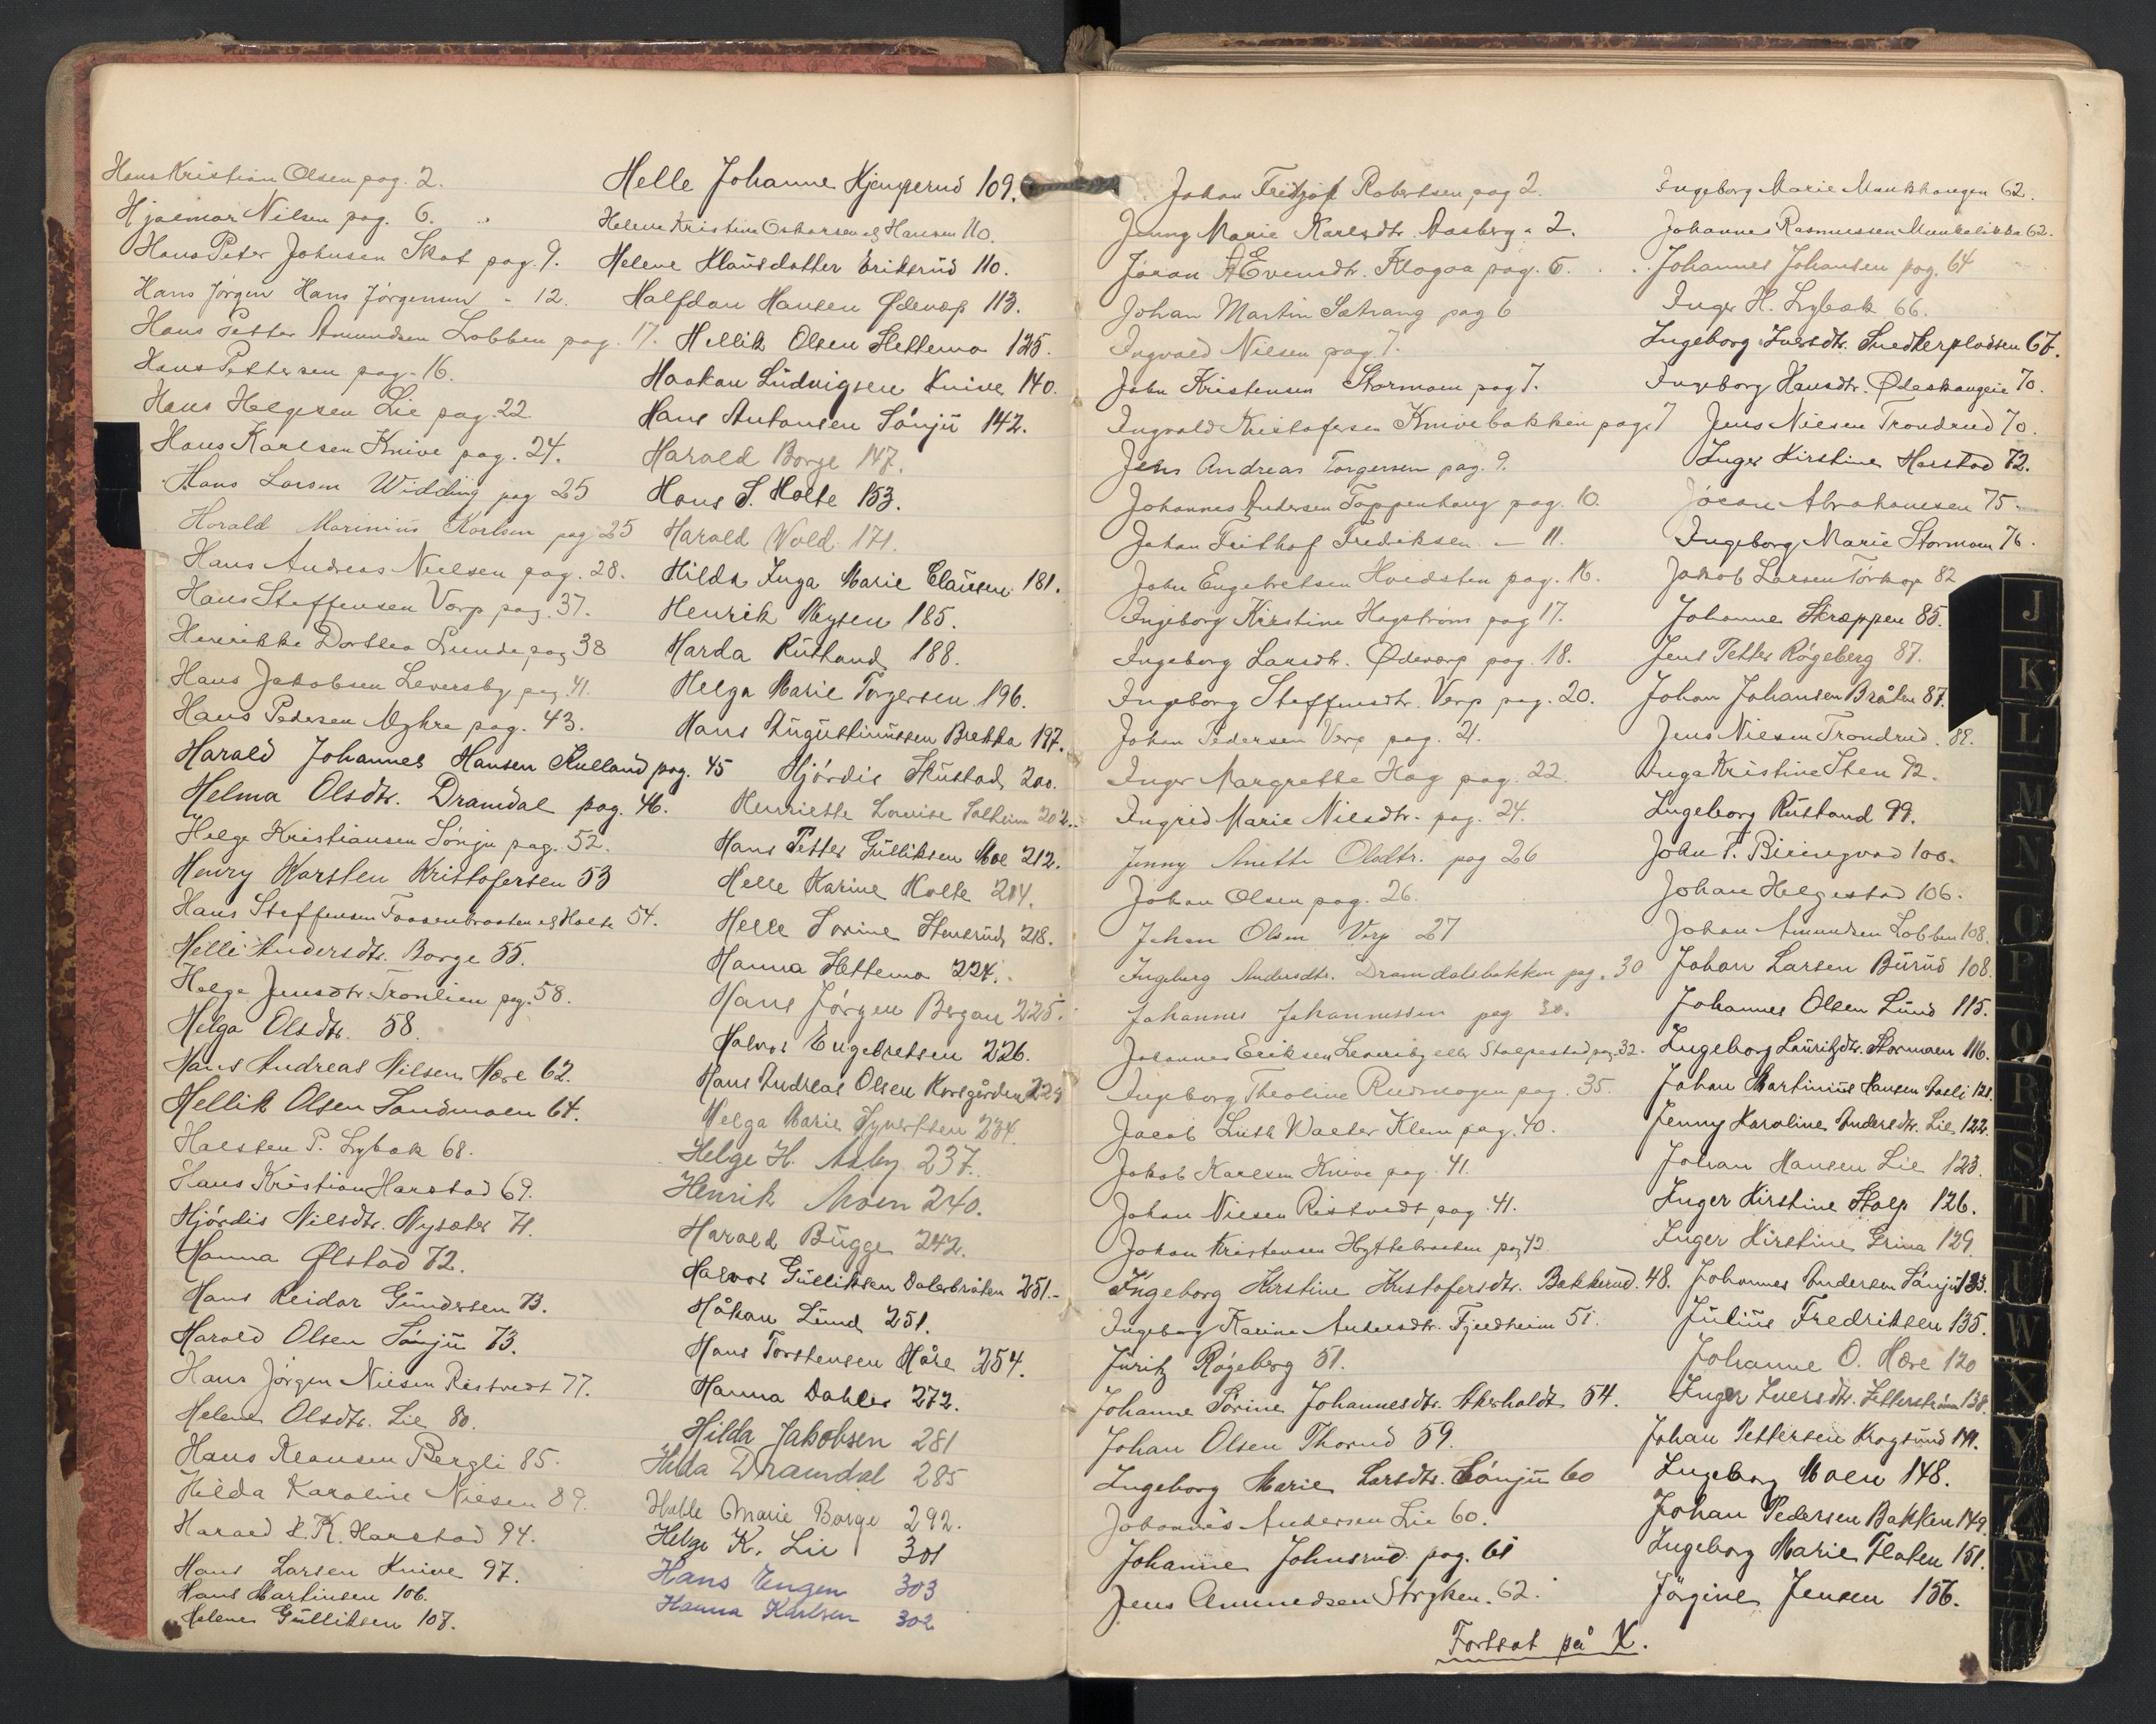 Hans Kristian Olsen pag. 2.
Hjalmar Nilsen pag. 6.
Hans Peter Johnsen Skat pag. 9.
Hans Jørgen Hans Jørgensen - 12.
Hans Petter Amundsen Lobben pag. 17.
Hans Pettersen pag. 16.
Hans Helgesen Lie pag. 22
Hans Karlsen Knive pag. 24.
Hans Larsen Widding pag 25
Harald Marinius Karlsen pag 25
Hans Andreas Nielsen pag. 28.
Hans Steffensen Verp pag. 37.
Henrikke Dorthea Lunde pag 38
Hans Jakobsen Leversby pag 41.
Hans Pedersen Myhre pag. 43.
Harald Johannes Hansen Rulland pag. 45
Helma Olsdtr. Dramdal pag. 46.
Helge Kristiansen Sønju pag. 52.
Henry Karsten Kristofersen 53
Hans Steffensen Faasenbraaten el Holte 54.
Helli Andersdtr. Borge 55.
Helga Jensdtr. Tronlien pag. 58.
Helga Olsdtr. 58.
Hans Andreas Nilsen Hære 62.
Hellik Olsen Sandmoen 64.
Halsten P. Lybæk 68.
Hans Kristian Harstad 69.
Hjørdis Nilsdtr. Nysæter 71.
Hanna Ølstad 72.
Hans Reidar Gundersen 73.
Harald Olsen Sønju 73.
Hans Jørgen Nilsen Ristvedt 77.
Helene Olsdtr. Lie 80.
Hans Klausen Bergli 85.
Hilda Karoline Nilsen 89.
Harald H. K. Harstad 94.
Hans Larsen Knive 97.
Hans Martinsen 106.
Helene Gulliksen 107.
Helle Johanne Kjemperud 109.
Helene Kristine Oskarsen el Hansen 110.
Helene Klausdatter Eriksrud 110.
Halfdan Hansen Ødevæp 113.
Hellik Olsen Hettemo 125.
Haakon Ludvigsen Knive 140.
Hans Antonsen Sønju 142.
Harald Borge 147.
Hans S. Holte 153.
Harald Wold 171.
Hilda Inga Marie Clausen 181.
Henrik Meysen 185.
Harda Rustand 188.
Helga Marie Torgersen 196.
Hans Augustinussen Brekka 197.
Hjørdis Skustad 200.
Henriette Lovise Solheim 202.
Hans Petter Gulliksen Moe 212.
Helle Karine Holte 214.
Helle Sorine Stensrud 218.
Hanna Hettemo 224.
Hans Jørgen Bergan 225.
Halvor Engebretsen 226.
Hans Andreas Olsen Korsgården 229
Helga Marie Syvertsen 234.
Helge H. Asby 237.
Henrik Moen 240.
Harald Bugge 242.
Halvor Gulliksen Dalerbråten 251.-
Håkon Lund 251.
Hans Torstensen Håre 254.
Hanna Dahler 272.
Hilda Jakobsen 281
Hilda Dramdal 285
Halle Marie Borge 292.
Helge K. Lie 301
Hans Engen 303
Hanna Karlsen 302
Johan Fritjof Robertsen pag 2.
Jenny Marie Karlsdtr. Aasberg " 2.
Joran A Evensdtr. Klogaa pag. 5.
Johan Martin Sætrang pag 6
Ingvald Nilsen pag 7.
John Kristensen Stormoen pag 7.
Ingvald Kristofersen Knivebakken pag. 7
Jens Andreas Torgersen pag. 9.
Johannes Andersen Toppenhaug pag. 10.
Johan Frithof Fredriksen - 11.
John Engebretsen Hvidsten pag. 16.
Ingeborg Kirstine Hagstrøm pag 17.
Ingeborg Larsdtr. Ødeverp pag. 18.
Ingeborg Steffensdtr. Verp pag. 20.
Johan Pedersen Verp pag. 21.
Inger Margrethe Hag pag. 22.
Ingrid Marie Nilsdtr. pag. 24.
Jenny Anette Olsdtr. pag 26
Johan Olsen pag. 26.
Johan Olsen Verp 27
Ingeborg Andersdtr. Dramdalsbakken pag. 30
Johannes Johannessen pag 30.
Johannes Eriksen Leversby eller Stolpestad pag. 32.
Ingeborg Theoline Rudmogen pag. 35.
Jacob Luth Walter Klem pag. 40.
Jakob Karlsen Knive pag. 41.
Johan Nilsen Ristvedt pag. 41.
Johan Kristensen Hyttebraaten pag 42
Ingeborg Kirstine Kristofersdtr. Bakkerud. 48.
Ingeborg Karine Andersdtr. Fjeldheim 51.
Juritz Røgeberg 51.
Johanne Sørine Johannesdtr. Akerholdt 54.
Johan Olsen Thorud 59.
Ingeborg Marie Larsdtr. Sønju 60
Johannes Andersen Lie 60.
Johanne Johnsrud pag. 61
Jens Amundsen Stryken. 62.
Ingeborg Marie Munkhaugen 62.
Johannes Rasmussen Munkelikka 62.
Johannes Johansen pag. 64
Inger H. Lybæk 66.
Ingeborg Iversdtr. Snedkerpladsen 67.
Ingeborg Hansdtr. Ødeskaugeie 70.
Jens Nilsen Trondrud 70.
Inger Kirstine Harstad 72.
Joran Abrahamsen 75.
Ingeborg Marie Stormoen 76.
Jakob Larsen Torkop 82
Johanne Skræppen 85.
Jens Petter Røgeberg 87.
Johan Johansen Bråten 87.
Jens Nilsen Trondrud. 88.
Inga Kristine Sten 92.
Ingeborg Rustand 99.
John P. Bieringvad 100.
Johan Helgestad 106.
Johan Amundsen Lobben 108.
Johan Larsen Burud 108.
Johannes Olsen Lund 115.
Ingeborg Lauritzdtr. Stormoen 116.
Johan Martinius Hansen Aaeli 121.
Jenny Karoline Andersdtr. Lie 122.
Johan Hansen Lie 123.
Inger Kirstine Stolp 126.
Inger Kirstine Grina 129.
Johannes Andersen Sønju 133.
Julius Fredriksen 135.
Johanne O. Hære 120
Inger Iversdtr. Zetterstrøm 138.
Johan Pettersen Krogsund 141.
Ingeborg Moen 148.
Johan Pedersen Bakken 149.
Ingeborg Marie Flaten 151.
Jørgine Jensen 156.
Fortsat på X.
J
K
L
M
N
O
P
Q
R
S
T
U
W
X
Y
Z
Æ
Ø